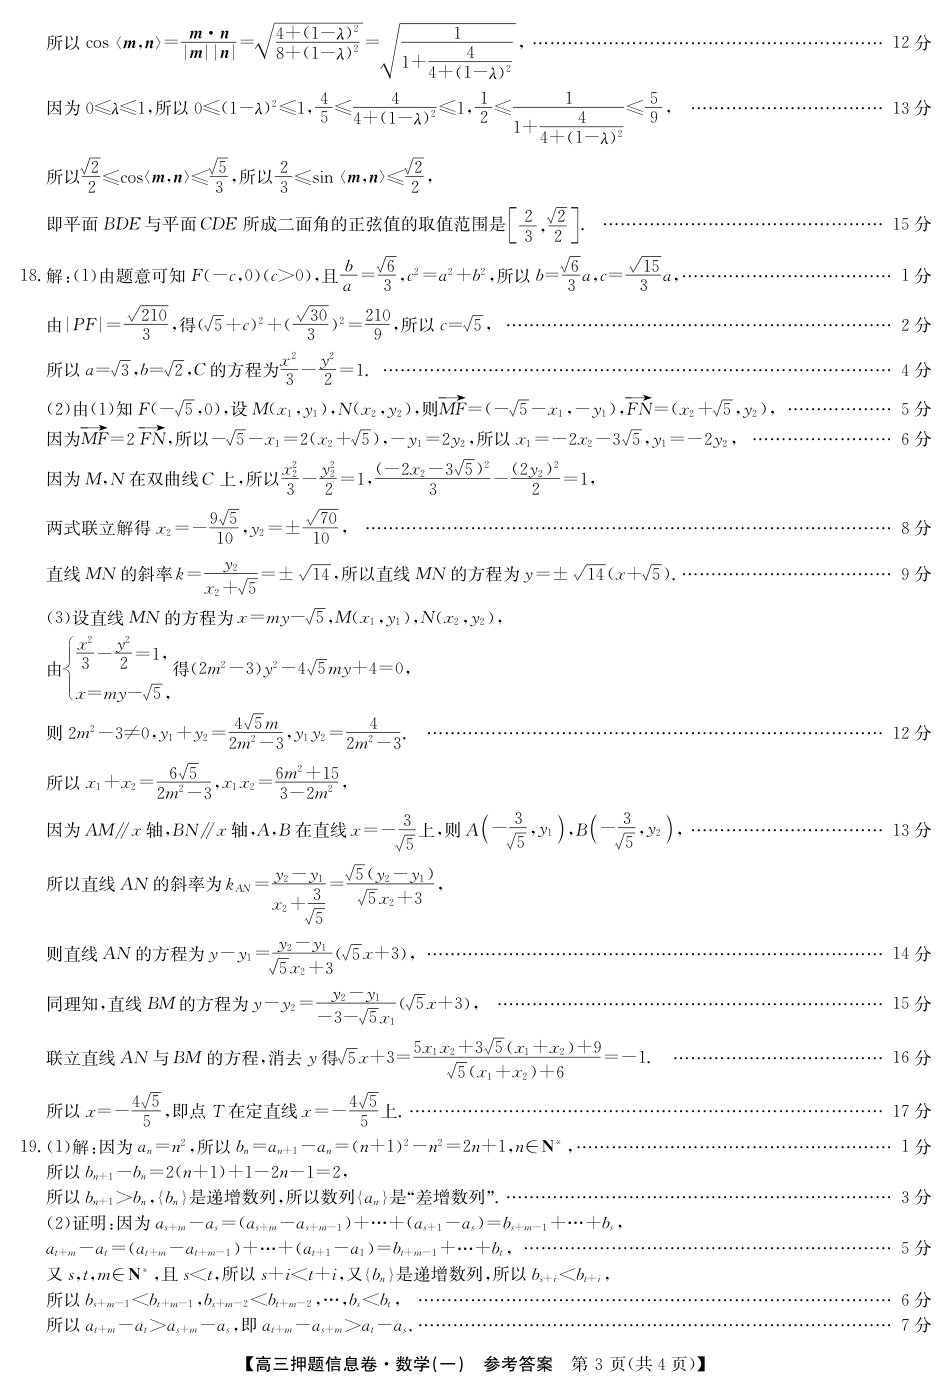 所以 cos⟨m,n⟩=m·n/(|m||n|)=√((4+(1−λ)²)/(8+(1−λ)²))=√(1/(1+4/(4+(1−λ)²))), …… 12 分
因为 0≤λ≤1,所以 0≤(1−λ)²≤1,4/5≤4/(4+(1−λ)²)≤1,1/2≤1/(1+4/(4+(1−λ)²))≤5/9, …… 13 分
所以√2/2≤cos⟨m,n⟩≤√5/3,所以2/3≤sin⟨m,n⟩≤√2/2,
即平面 BDE 与平面 CDE 所成二面角的正弦值的取值范围是[2/3,√2/2]. …… 15 分
18. 解:(1)由题意可知 F(−c,0)(c>0),且b/a=√6/3,c²=a²+b²,所以 b=√6/3a,c=√15/3a,…… 1 分
由|PF|=√210/3,得(√5+c)²+(√30/3)²=210/9,所以 c=√5, …… 2 分
所以 a=√3,b=√2,C 的方程为x²/3−y²/2=1. …… 4 分
(2)由(1)知 F(−√5,0),设 M(x₁,y₁),N(x₂,y₂),则MF→=(−√5−x₁,−y₁),FN→=(x₂+√5,y₂), …… 5 分
因为MF→=2FN→,所以−√5−x₁=2(x₂+√5),−y₁=2y₂,所以 x₁=−2x₂−3√5,y₁=−2y₂, …… 6 分
因为 M,N 在双曲线 C 上,所以x₂²/3−y₂²/2=1,(−2x₂−3√5)²/3−(2y₂)²/2=1,
两式联立解得 x₂=−9√5/10,y₂=±√70/10, …… 8 分
直线 MN 的斜率 k=y₂/(x₂+√5)=±√14,所以直线 MN 的方程为 y=±√14(x+√5). …… 9 分
(3)设直线 MN 的方程为 x=my−√5,M(x₁,y₁),N(x₂,y₂),
由{x²/3−y²/2=1, x=my−√5, 得(2m²−3)y²−4√5my+4=0,
则 2m²−3≠0,y₁+y₂=4√5m/(2m²−3),y₁y₂=4/(2m²−3). …… 12 分
所以 x₁+x₂=6√5/(2m²−3),x₁x₂=(6m²+15)/(3−2m²),
因为 AM∥x 轴,BN∥x 轴,A,B 在直线 x=−3/√5上,则 A(−3/√5,y₁),B(−3/√5,y₂), …… 13 分
所以直线 AN 的斜率为 k_AN=(y₂−y₁)/(x₂+3/√5)=√5(y₂−y₁)/(√5x₂+3),
则直线 AN 的方程为 y−y₁=(y₂−y₁)/(√5x₂+3)(√5x+3), …… 14 分
同理知,直线 BM 的方程为 y−y₂=(y₂−y₁)/(−3−√5x₁)(√5x+3), …… 15 分
联立直线 AN 与 BM 的方程,消去 y 得√5x+3=(5x₁x₂+3√5(x₁+x₂)+9)/(√5(x₁+x₂)+6)=−1. …… 16 分
所以 x=−4√5/5,即点 T 在定直线 x=−4√5/5上. …… 17 分
19. (1)解:因为 aₙ=n²,所以 bₙ=aₙ₊₁−aₙ=(n+1)²−n²=2n+1,n∈N*,…… 1 分
所以 bₙ₊₁−bₙ=2(n+1)+1−2n−1=2,
所以 bₙ₊₁>bₙ,{bₙ}是递增数列,所以数列{aₙ}是“差增数列”. …… 3 分
(2)证明:因为 aₛ₊ₘ−aₛ=(aₛ₊ₘ−aₛ₊ₘ₋₁)+…+(aₛ₊₁−aₛ)=bₛ₊ₘ₋₁+…+bₛ,
aₜ₊ₘ−aₜ=(aₜ₊ₘ−aₜ₊ₘ₋₁)+…+(aₜ₊₁−a₁)=bₜ₊ₘ₋₁+…+bₜ, …… 5 分
又 s,t,m∈N*,且 s<t,所以 s+i<t+i,又{bₙ}是递增数列,所以 bₛ₊ᵢ<bₜ₊ᵢ,
所以 bₛ₊ₘ₋₁<bₜ₊ₘ₋₁,bₛ₊ₘ₋₂<bₜ₊ₘ₋₂,…,bₛ<bₜ, …… 6 分
所以 aₜ₊ₘ−aₜ>aₛ₊ₘ−aₛ,即 aₜ₊ₘ−aₛ₊ₘ>aₜ−aₛ. …… 7 分
【高三押题信息卷·数学(一) 参考答案 第 3 页(共 4 页)】